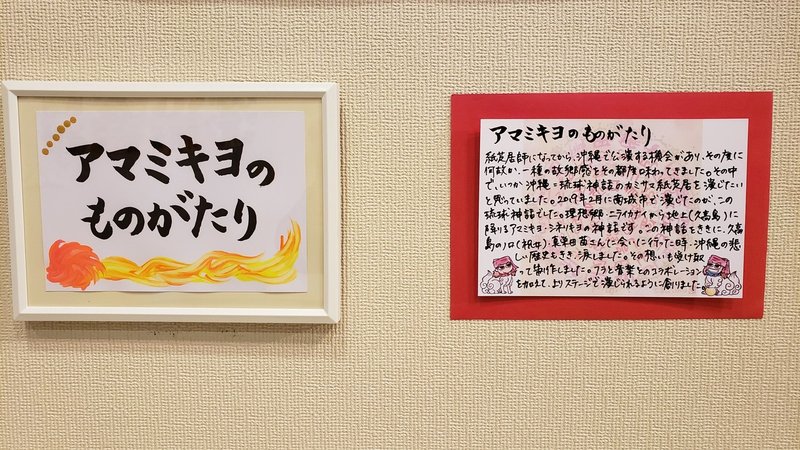 アマミキヨの
ものがたり
アマミキヨのものがたり
紙芝居師になってから、沖縄で公演する機会があり、その度に
何故か、一種の故郷感をその都度味わってきました。その中
で、いつか沖縄=琉球神話のカミサマ紙芝居を演じたい
と思っていました。2019年2月に南城市で演じたのが、この
琉球神話でした。理想郷・ニライカナイから地上(久高島)に
降りるアマミキヨ・シネリキヨの神話です。この神話をききに、久高
島のノロ(祝女)、真栄田苗さんに会いに行った時、沖縄の悲
しい歴史もきき、涙しました。その想いも受け取
って製作しました。フラと音楽とのコラボレーション
を加えて、よりステージで演じられるように創りました。